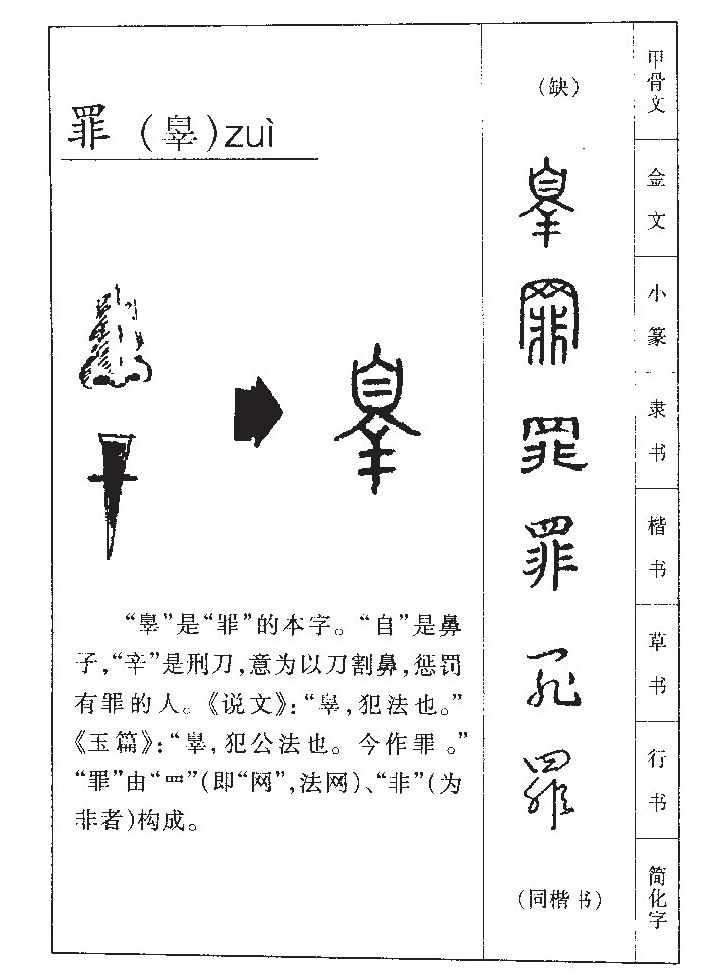 罪（辠）zuì
“辠”是“罪”的本字。“自”是鼻
子，“辛”是刑刀，意为以刀割鼻，惩罚
有罪的人。《说文》：“辠，犯法也。”
《玉篇》：“辠，犯公法也。今作罪。”
“罪”由“罒”（即“网”，法网）、“非”（为
非者）构成。
（缺）
辠
罪
罪
罪
罪
罪
（同楷书）
甲骨文
金文
小篆
隶书
楷书
草书
行书
简化字